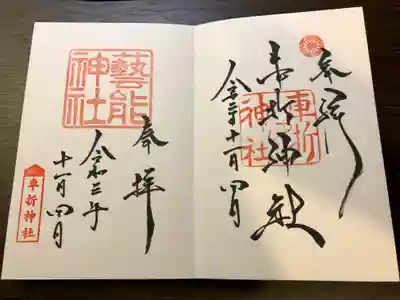 奉拝
車折神社
車折
神社
令和三年十一月四日
奉拝
藝能
神社
令和三年
十一月四日
車折神社